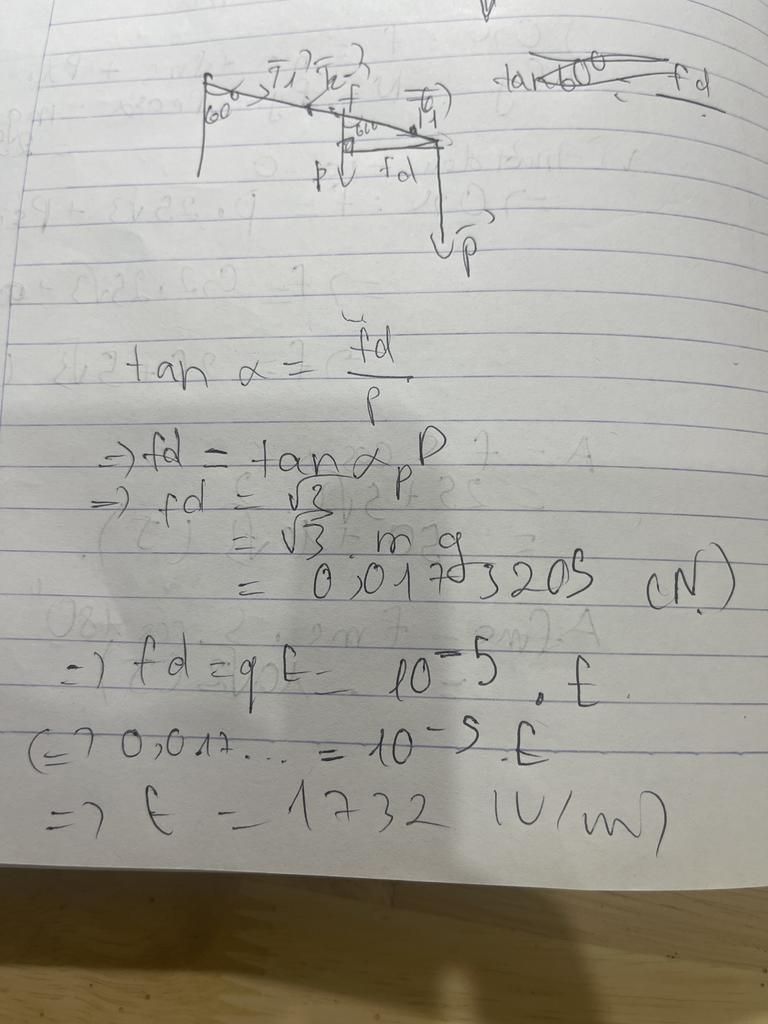 60°
T1
T2
tan 60°
fd
f
60°
T1
P
fd
P
tan α = fd / P
=> fd = tan α P
=> fd = √3 P
= √3 . m g
= 0,0173205 (N)
=> fd = q E = 10^-5 . E
<=> 0,017... = 10^-5 . E
=> E = 1732 (V/m)